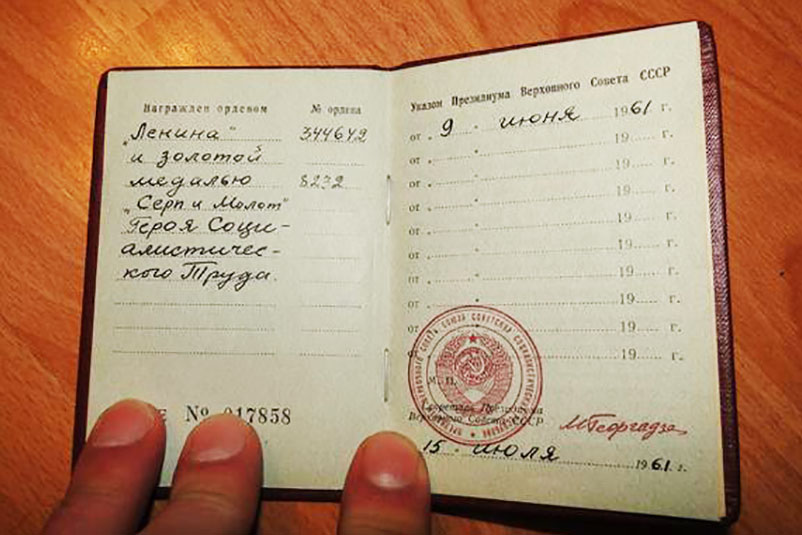 Награжден орденом № ордена
„Ленина" 344649
и золотой
медалью 8232
„Серп и Молот"
Героя Соци-
алистичес-
кого Труда.
№ 017858
Указом Президиума Верховного Совета СССР
от „ 9 " июня 1961 г.
от „ " 19 г.
от „ " 19 г.
от „ " 19 г.
от „ " 19 г.
от „ " 19 г.
от „ " 19 г.
от „ " 19 г.
от 19 г.
от 19 г.
М.П.
Секретарь Президиума
Верховного Совета СССР
МГеоргадзе
15 июля 1961 г.